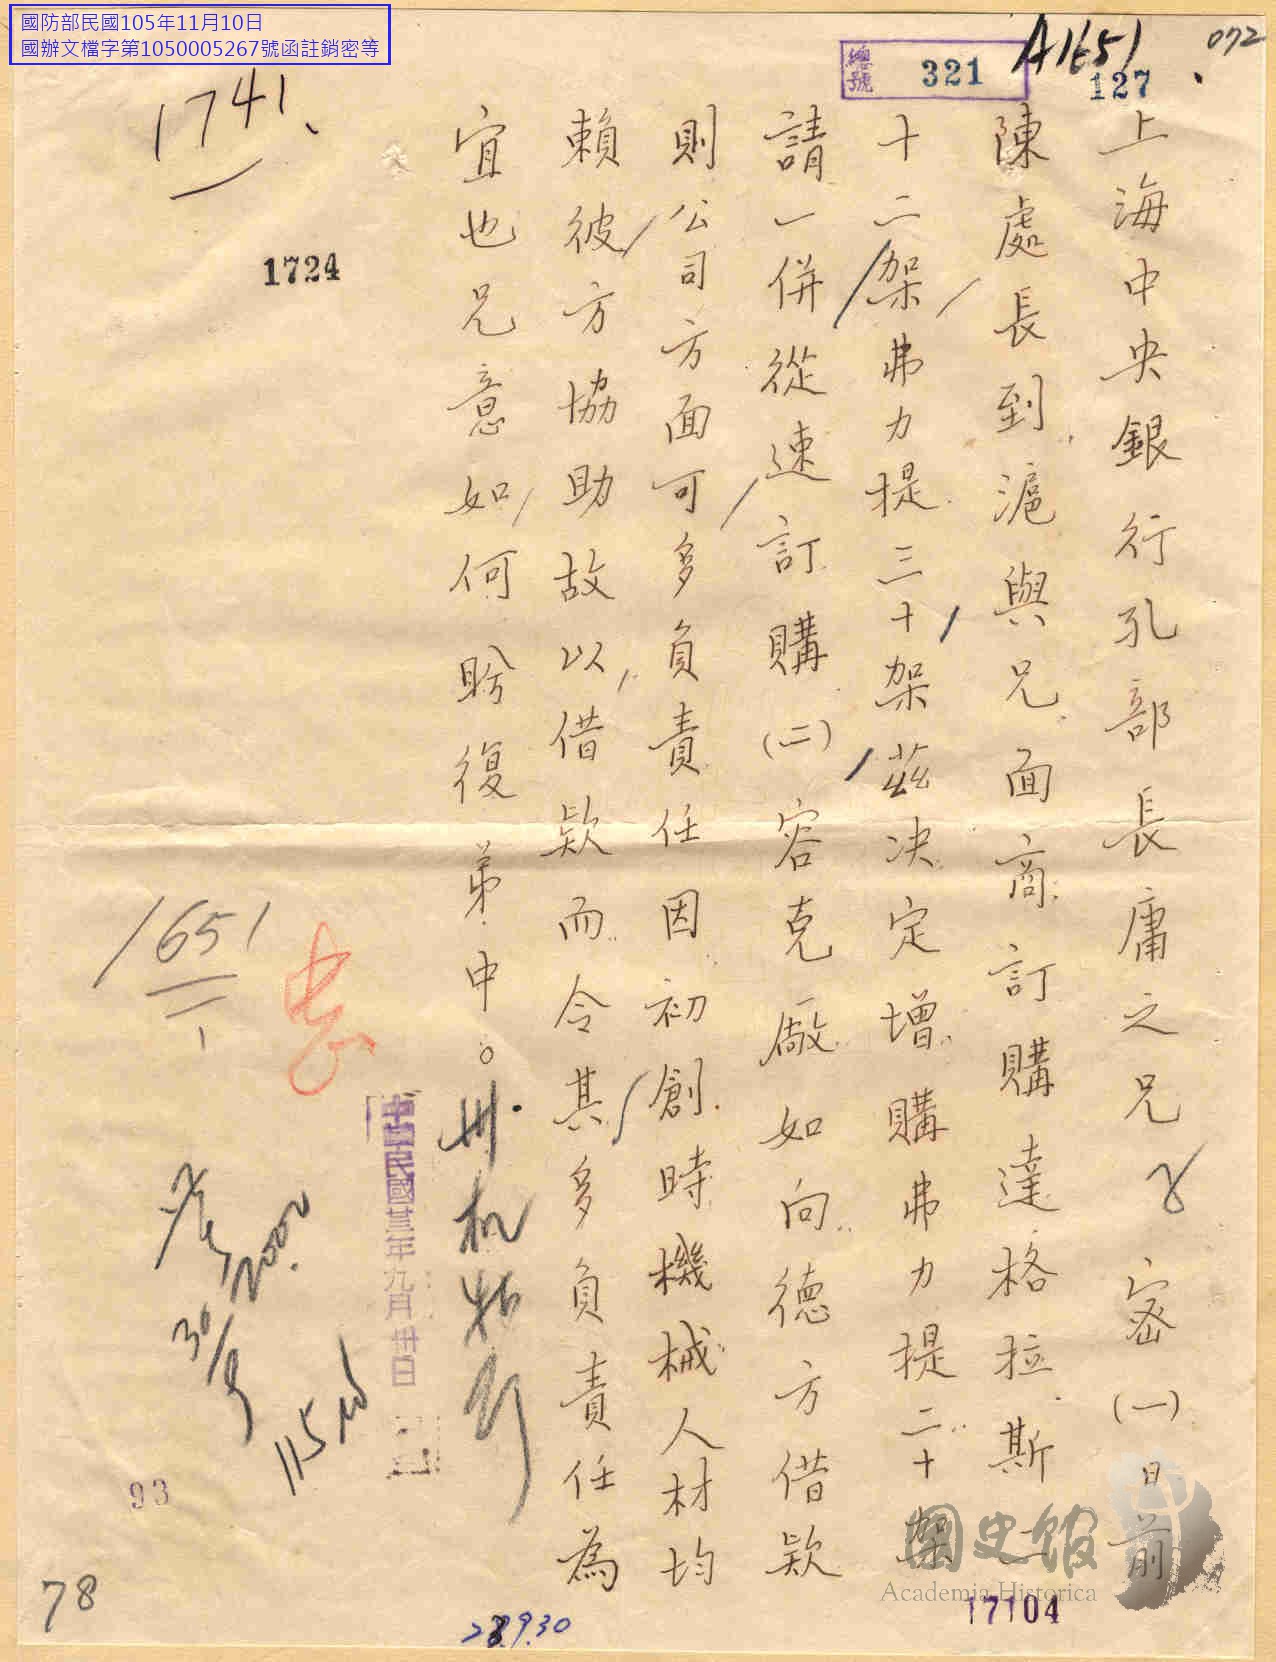 國防部民國105年11月10日
國辦文檔字第1050005267號函註銷密等
總號 321
A1651
127
072
上海中央銀行孔部長庸之兄 密(一)日前
陳處長到滬與兄面商訂購達格拉斯二
十二架弗力提三十架茲決定增購弗力提二十架
請一併從速訂購(二)容克廠如向德方借款
則公司方面可多負責任因初創時機械人材均
賴彼方協助故以借款而令其多負責任為
宜也兄意如何盼復 弟中。卅机牯
1741
1724
1651
中華民國廿三年九月卅日
2000
30/9
93
78
23.9.30
17104
國史館
Academia Historica